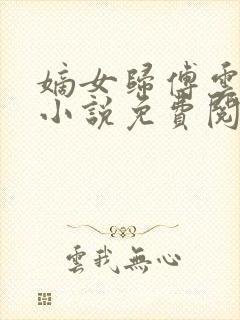 嫡女歸傅雲
小說免費閱
雲我無心